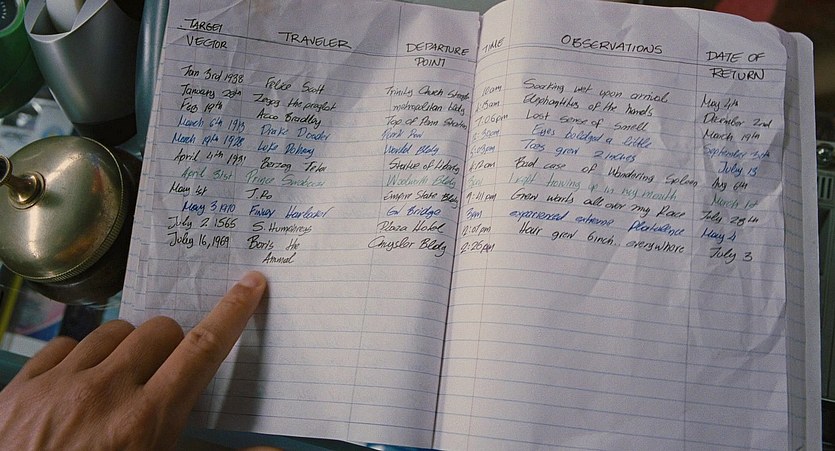 TARGET VECTOR TRAVELER DEPARTURE POINT TIME OBSERVATIONS DATE OF RETURN
Jan 3rd 1938 Felice Scott Trinity Church 10am Soaking wet upon arrival May 4th
January 20th the Elephantitis of the hands December 2nd
Feb 19th Bradley Top of Penn Station 7:06pm Lost sense of smell March 19th
March 6th 1913 Park Row Eyes bulged a little September 30th
March 19th 1928 Luke Delaney World Bldg Toes grew 2 inches July 13
April 4th 1931 Statue of Liberty 6:12am Bad case of Wandering Spleen Aug 6th
April 31st Prince Woolworth Bldg Light throwing up in my mouth March 1st
May 1st Empire State Bldg 9:11pm Grew warts all over my face July 28th
May 3, 1910 Finley GW Bridge 3pm experienced extreme flatulence May 4
July 2. 1565 S. Humphreys Plaza Hotel 12:01pm Hair grew 6inch, everywhere July 3
July 16, 1969 Boris the Animal Chrysler Bldg 2:25pm